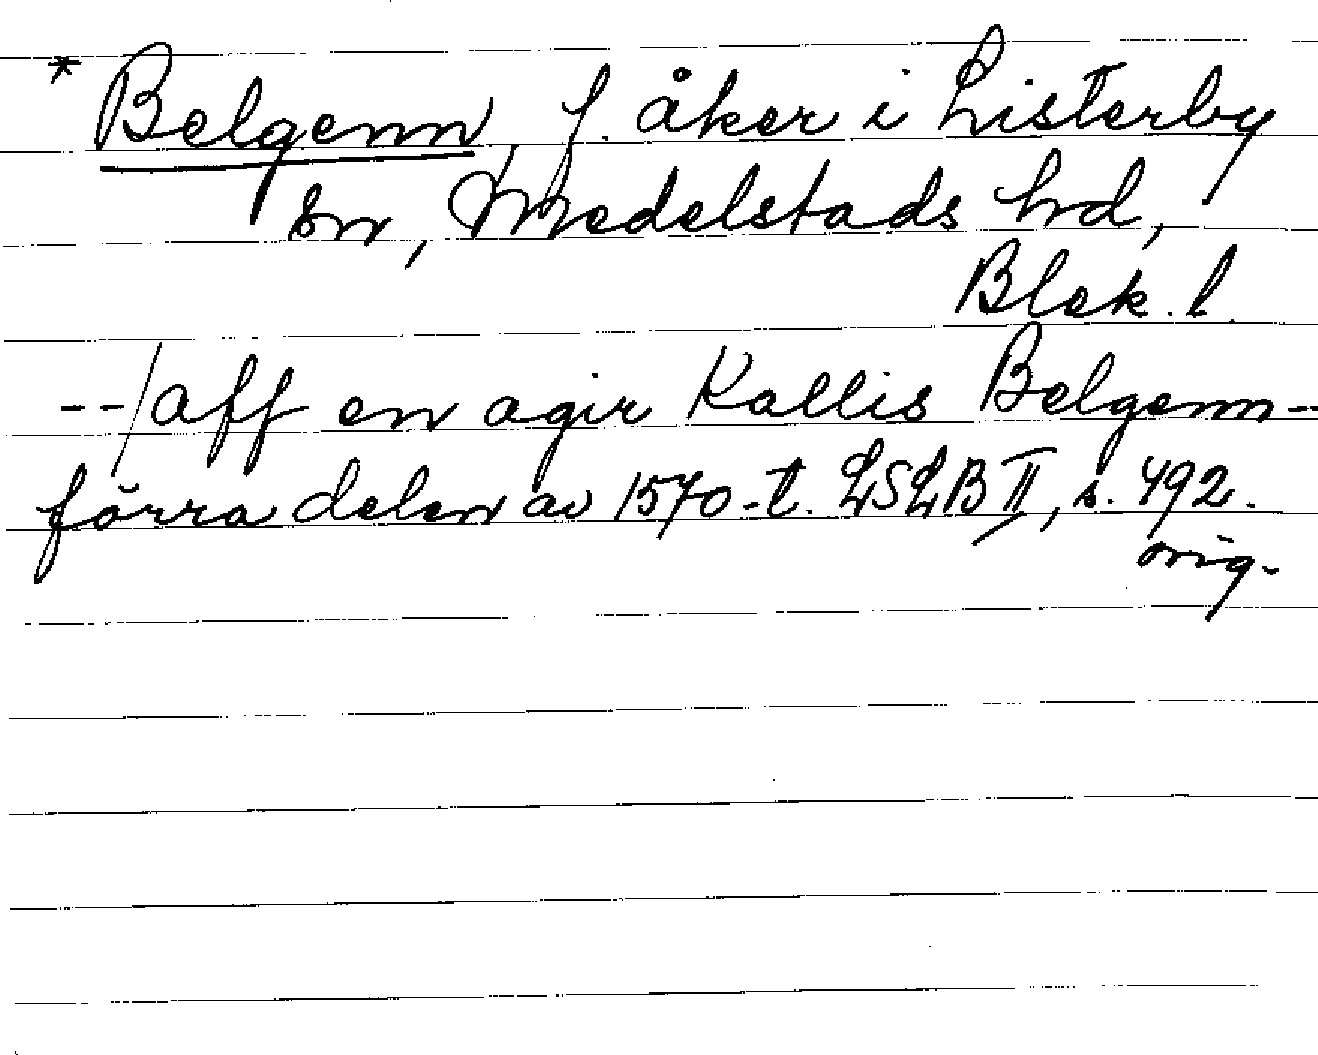 * Belgenn, f. åker i Listerby
sn, Medelstads hd,
Blek. l.
--/aff en agir Kallis Belgenn--
förra delen av 1570-t. LSLB II, s. 492.
orig.